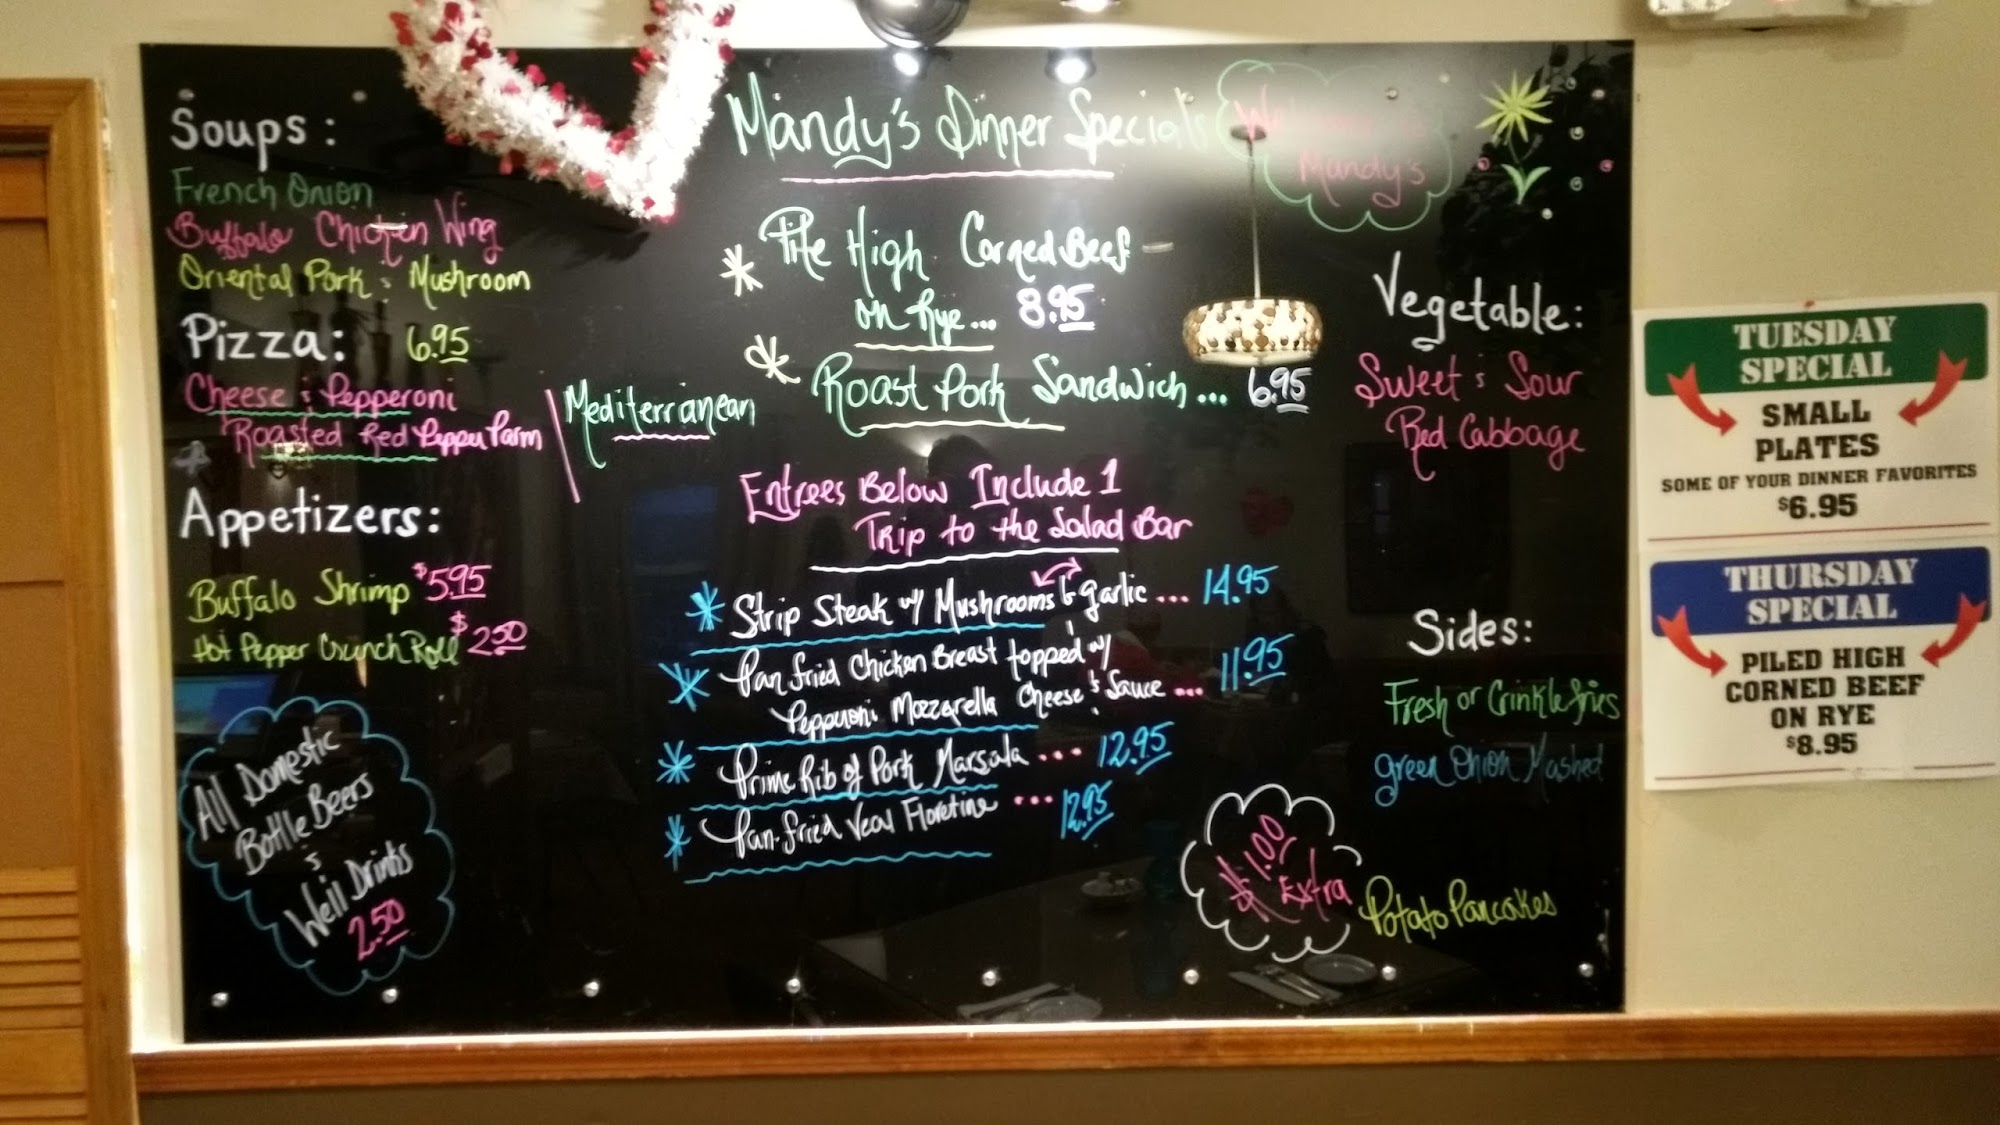 Soups:
French Onion
Buffalo Chicken Wing
Oriental Pork & Mushroom
Pizza: 6.95
Cheese & Pepperoni
Roasted Red Pepper Parm
Mediterranean
Appetizers:
Buffalo Shrimp $5.95
Hot Pepper Crunch Roll $2.50
All Domestic
Bottle Beers
&
Well Drinks
2.50
Mandy's Dinner Specials
Pile High Corned Beef
on Rye... 8.95
Roast Pork Sandwich... 6.95
Entrees Below Include 1
Trip to the Salad Bar
Strip Steak w/ Mushrooms & garlic... 14.95
Pan fried Chicken Breast topped w/
Pepperoni Mozzarella Cheese & Sauce... 11.95
Prime Rib of Pork Marsala... 12.95
Pan-fried Veal Floretine... 12.95
Mandy's
Vegetable:
Sweet & Sour
Red Cabbage
Sides:
Fresh or Crinkle fries
green Onion Mashed
$1.00
Extra
Potato Pancakes
TUESDAY
SPECIAL
SMALL
PLATES
SOME OF YOUR DINNER FAVORITES
$6.95
THURSDAY
SPECIAL
PILED HIGH
CORNED BEEF
ON RYE
$8.95